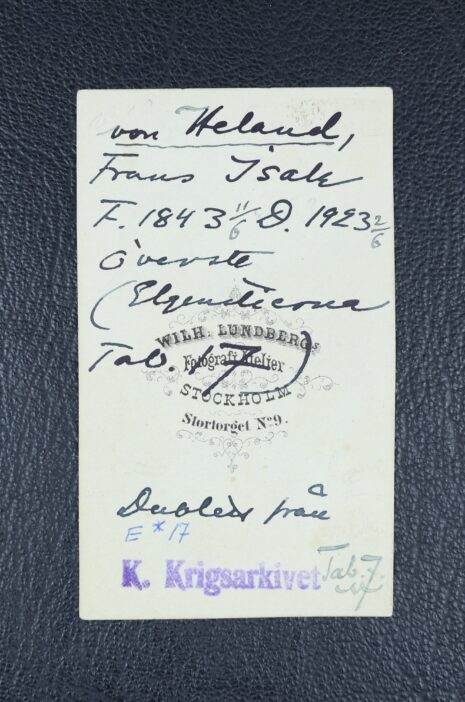 von Heland,
Frans Isak
F. 1843 11/6 D. 1923 2/6
överste
(Elgenstierna
WILH. LUNDBERGs
Tab. 17)
Fotografi Atelier
STOCKHOLM
Stortorget No 9.
Dublett från
E*17
K. Krigsarkivet
Tab. 7.